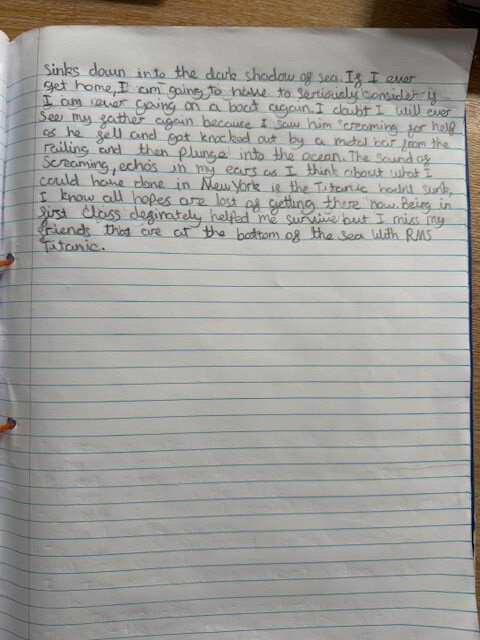 sinks down into the dark shadow of sea. If I ever
get home, I am going to have to seriously consider if
I am ever going on a boat again. I doubt I will ever
see my father again because I saw him screaming for help
as he fell and got knocked out by a metal bar from the
railing and then plunge into the ocean. The sound of
screaming, echos in my ears as I think about what I
could have done in New York if the Titanic hadnt sunk,
I know all hopes are lost of getting there now. Being in
first Class definately helped me survive but I miss my
friends that are at the bottom of the sea with RMS
Titanic.